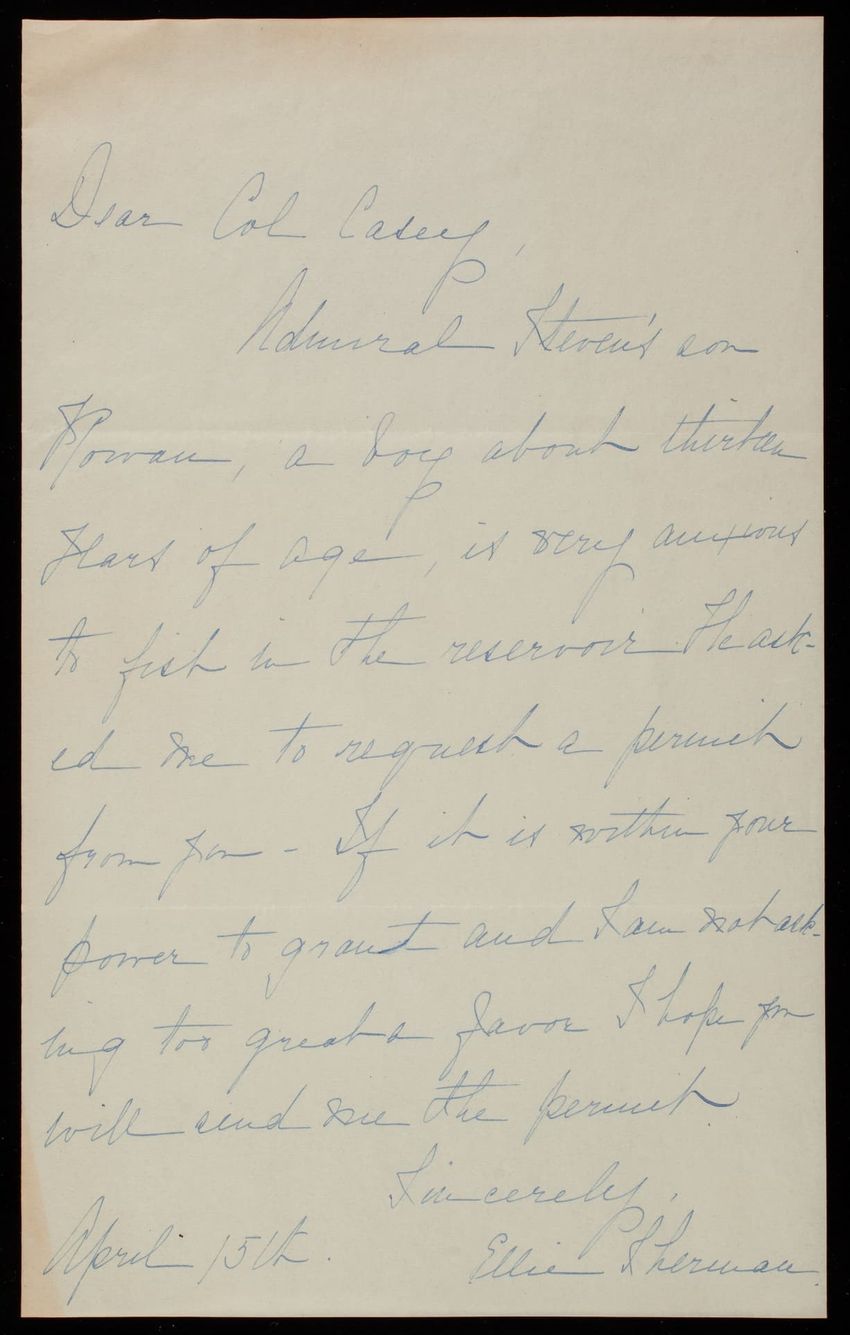 Dear Col Casey,
Admiral Steven's son
Rowan, a boy about thirteen
years of age, is very anxious
to fish in the reservoir. He ask-
ed me to request a permit
from you - If it is within your
power to grant and I am not ask-
ing too great a favor I hope you
will send me the permit
Sincerely,
April 15th. Ellie Sherman.